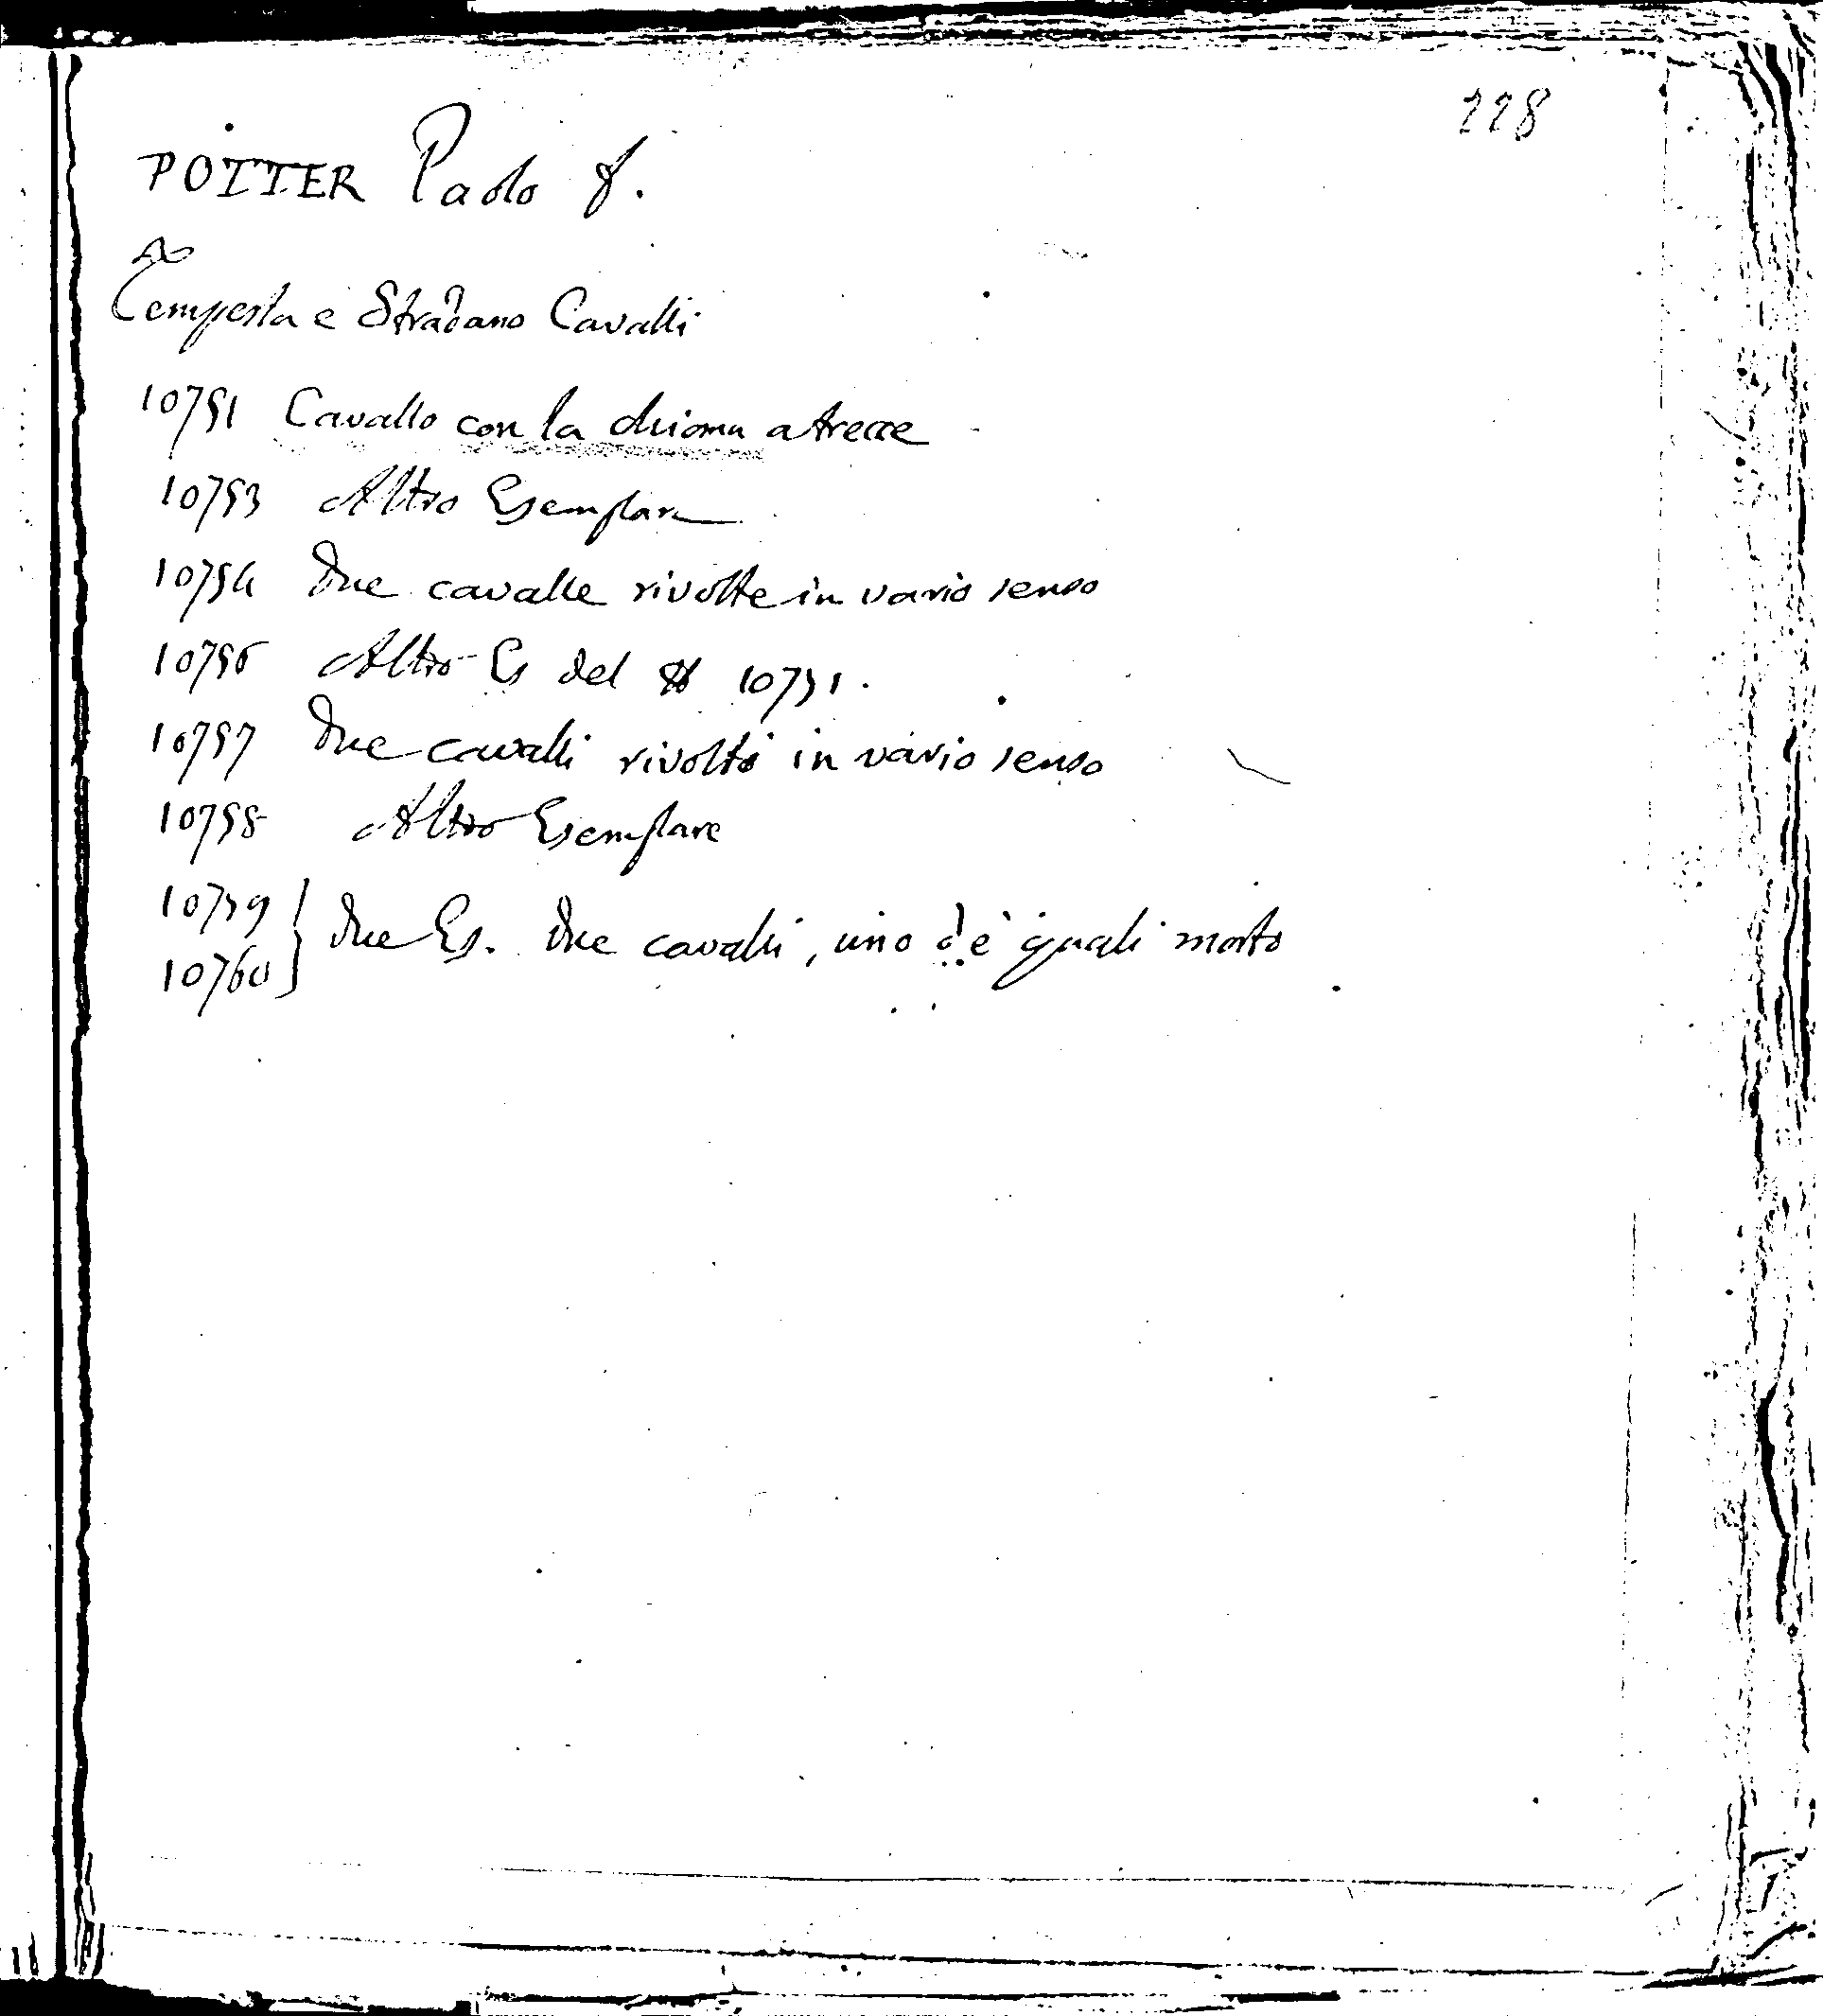 228
POTTER Paolo f.
Tempesta e Stradano Cavalli
10751 Cavallo con la chioma a trecce
10753 Altro Esemplare
10754 Due cavalle rivolte in vario senso
10756 Altro Es del # 10751.
10757 Due cavalli rivolti in vario senso
10758 Altro Esemplare
10759
10760 } Due Es. Due cavalli, uno d'è quali morto